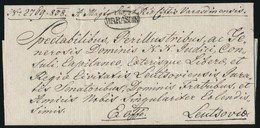 Nro 2769-808. A Magistratu
VARASDIN
Spectabilibus, Perillustribus, ac Ge-
nerosis Dominis N.N. Judici, Con-
suli, Capitaneo, Caeterisque Liberae ac
Regiae Civitatis Leutsoviensis Jura-
tis Senatoribus, Dominis Fratribus, et
Amicis Nobis Singulariter Colendis-
simis.
Ex Offo. Leutsoviae